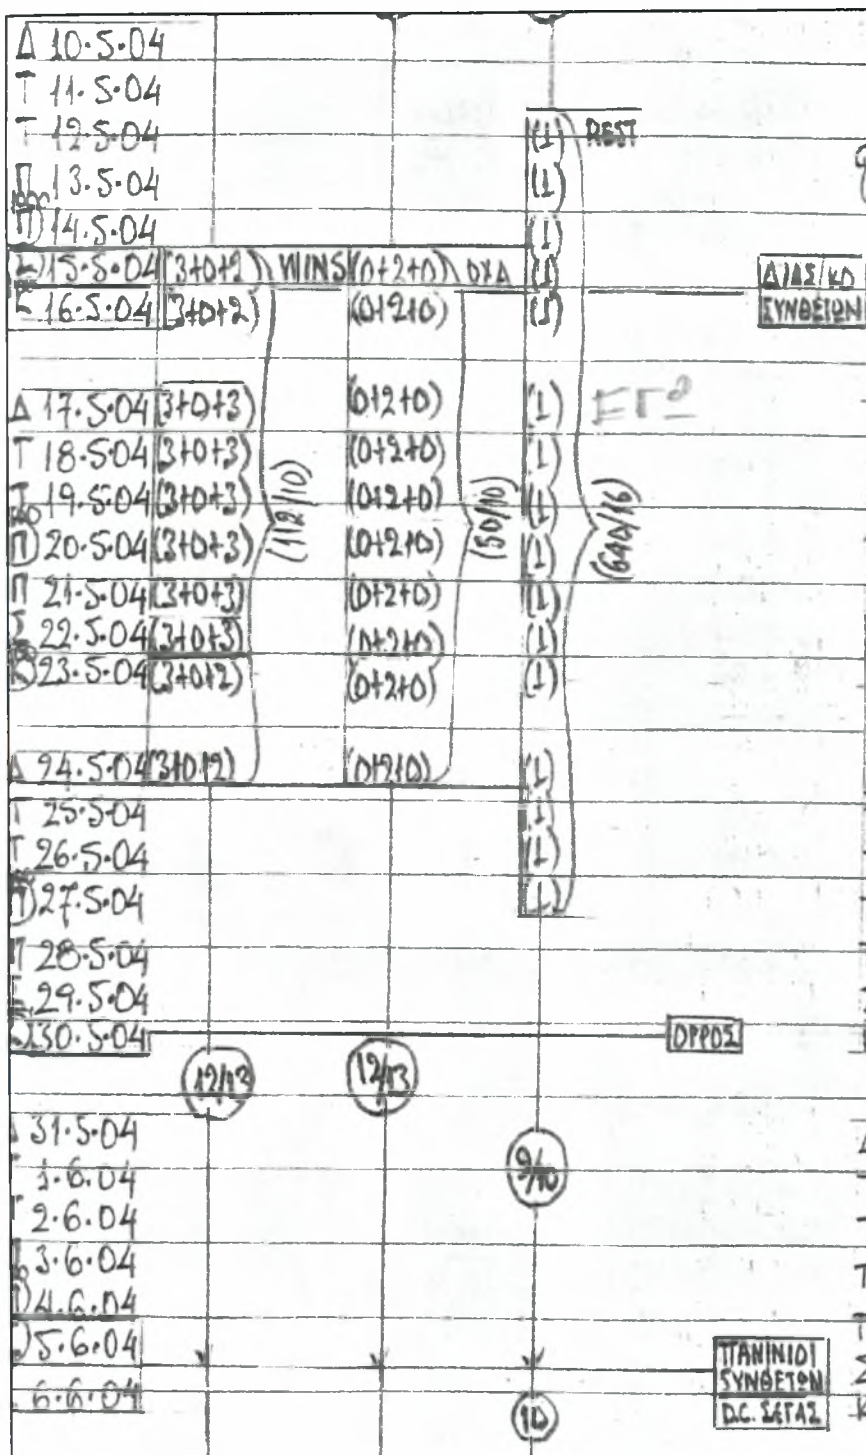 Δ 10.5.04
Τ 11.5.04
Τ 12.5.04 (1) REST
Π 13.5.04 (1)
Π 14.5.04 (1)
Σ 15.5.04 (3+0+2) WINS (0+2+0) OXA (1) ΔΙΑΣ/ΚΟ
Κ 16.5.04 (3+0+2) (0+2+0) (1) ΣΥΝΘΕΤΩΝ
Δ 17.5.04 (3+0+3) (0+2+0) (1)
Τ 18.5.04 (3+0+3) (0+2+0) (1)
Τ 19.5.04 (3+0+3) (112/10) (0+2+0) (50/10) (1) (640/16)
Π 20.5.04 (3+0+3) (0+2+0) (1)
Π 21.5.04 (3+0+3) (0+2+0) (1)
Σ 22.5.04 (3+0+3) (0+2+0) (1)
Κ 23.5.04 (3+0+2) (0+2+0) (1)
Δ 24.5.04 (3+0+2) (0+2+0) (1)
Τ 25.5.04 (1)
Τ 26.5.04 (1)
Π 27.5.04 (1)
Π 28.5.04
Σ 29.5.04
30.5.04 ΟΡΡΟΣ
12/13 12/13
Δ 31.5.04
1.6.04 9/10
Τ 2.6.04
Π 3.6.04
Π 4.6.04
5.6.04 ΠΑΝΙΝΙΟΙ
ΣΥΝΘΕΤΩΝ
6.6.04 10 D.C. ΣΕΓΑΣ